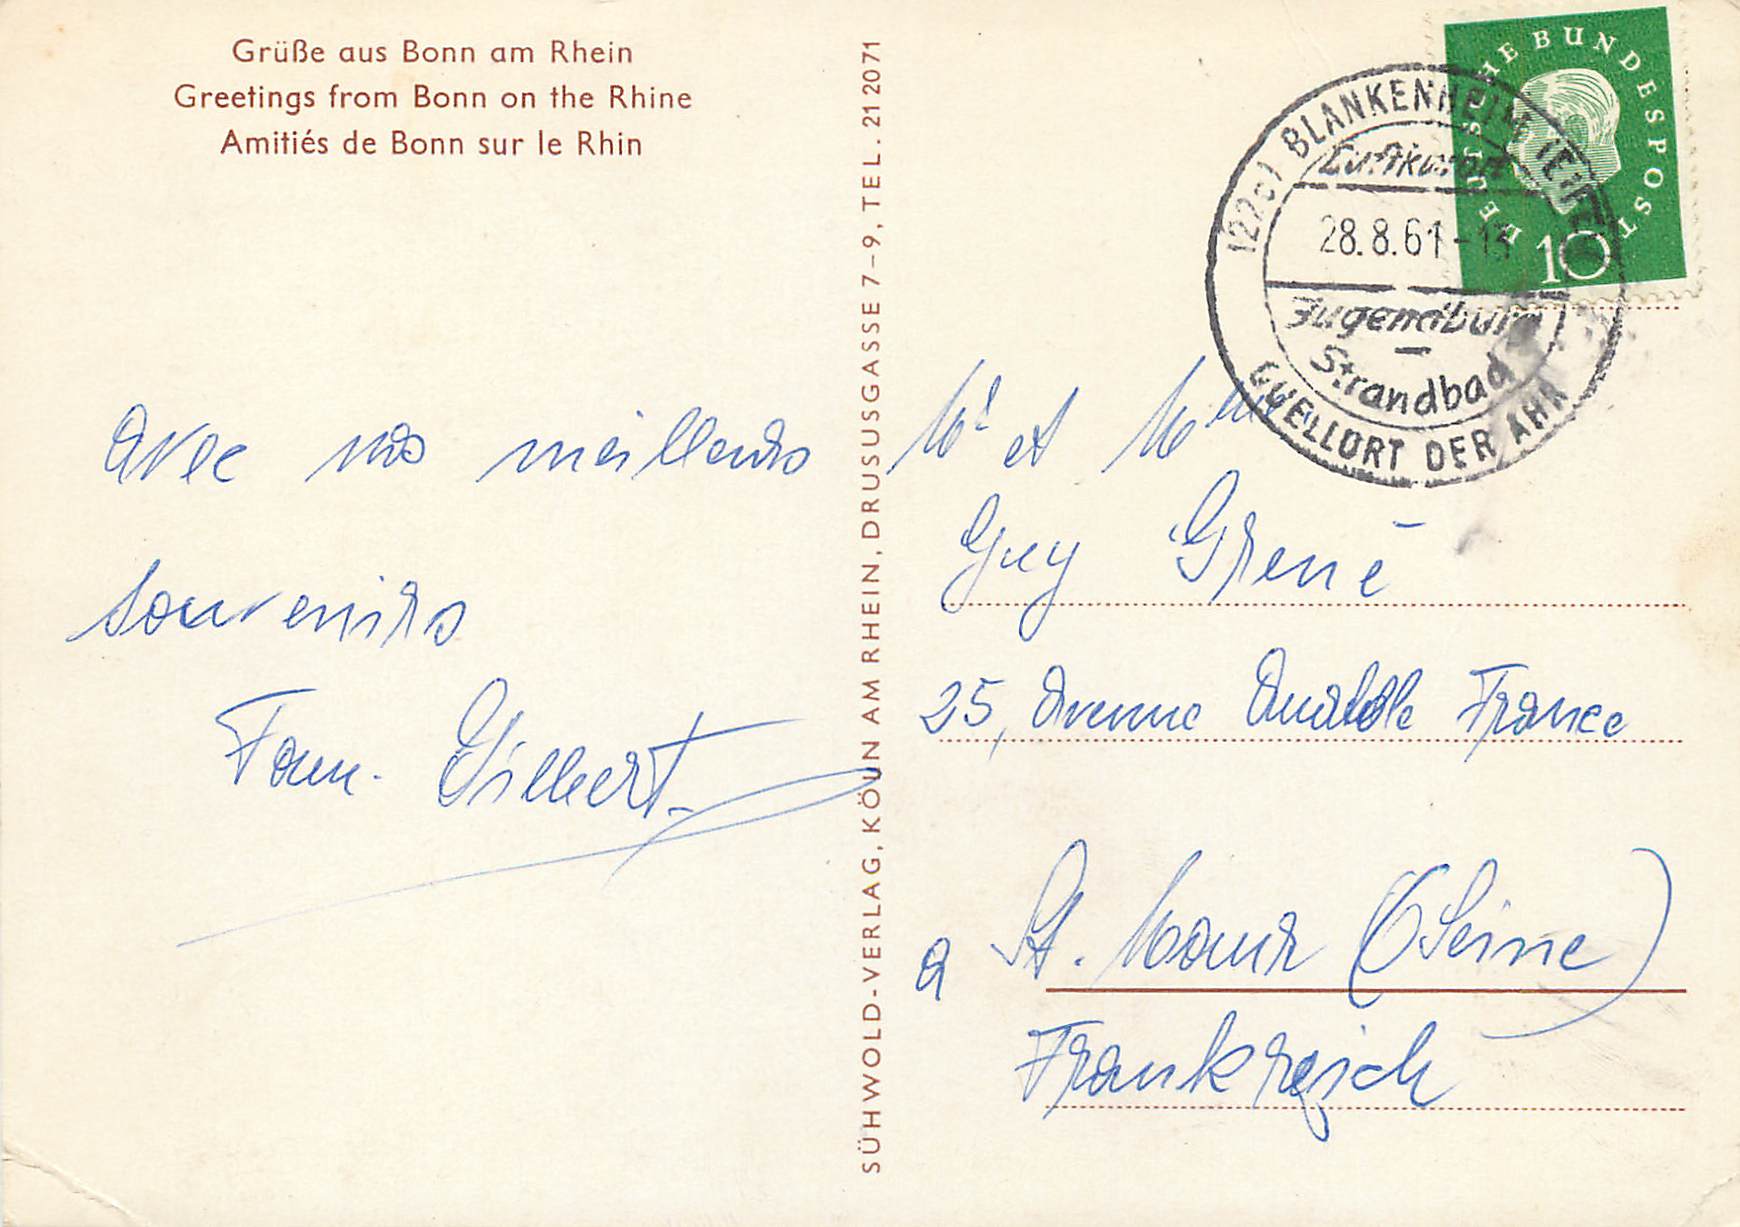 Grüße aus Bonn am Rhein
Greetings from Bonn on the Rhine
Amitiés de Bonn sur le Rhin
Avec nos meilleurs
souvenirs
Fam. Gilbert
SÜHWOLD-VERLAG, KÖLN AM RHEIN, DRUSUSGASSE 7–9, TEL. 21 20 71
DEUTSCHE BUNDESPOST
10
(22c) BLANKENHEIM (EIFEL)
Luftkurort
28.8.61
Jugendburg
–
Strandbad
QUELLORT DER AHR
Mr et Mme
Guy Grené
25, Avenue Anatole France
a St. Maur (Seine)
Frankreich